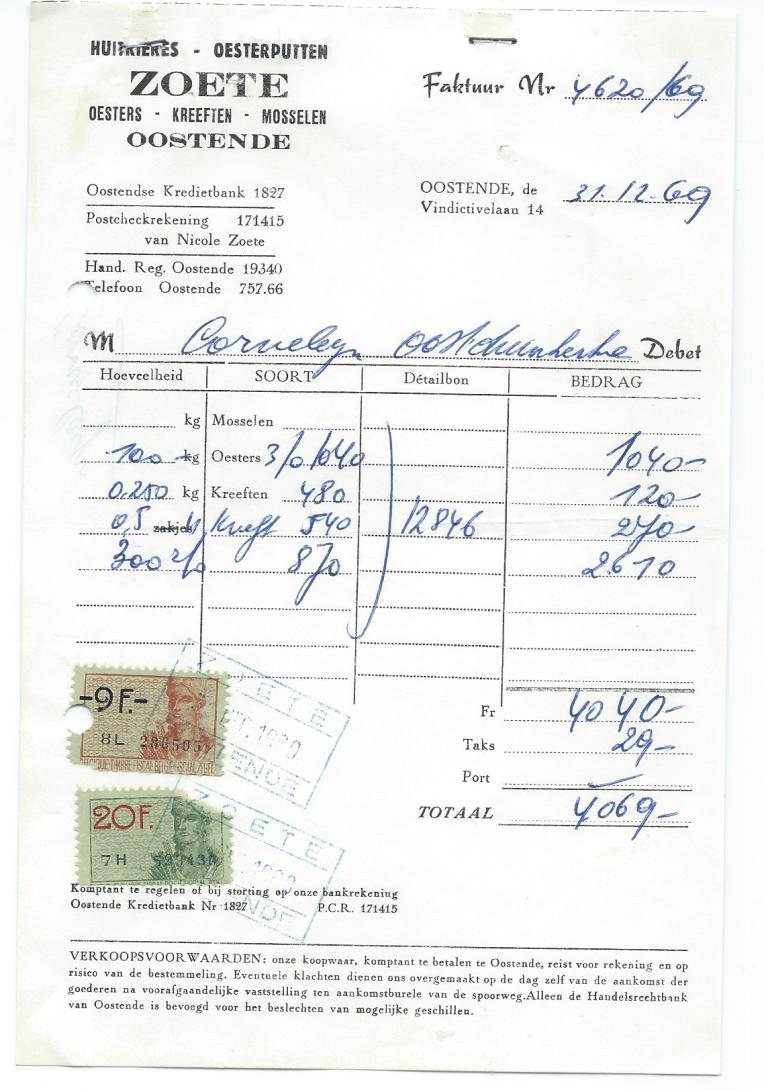 HUITRIERES - OESTERPUTTEN
ZOETE
OESTERS - KREEFTEN - MOSSELEN
OOSTENDE
Faktuur Nr 4620/69
Oostendse Kredietbank 1827
Postcheckrekening 171415
van Nicole Zoete
Hand. Reg. Oostende 19340
Telefoon Oostende 757.66
OOSTENDE, de 31.12.69
Vindictivelaan 14
M Corneleyn Debet
Hoeveelheid SOORT Détailbon BEDRAG
kg Mosselen
100 kg Oesters 3/0 1040 1040-
0.250 kg Kreeften 480 120-
0,5 zakjes 540 12846 270-
300 870 2610
Fr 4040-
Taks 29-
Port
TOTAAL 4069-
-9F.-
8L
20F.
7H
ZOETE
ZOETE
Komptant te regelen of bij storting op onze bankrekening
Oostende Kredietbank Nr 1827 P.C.R. 171415
VERKOOPSVOORWAARDEN: onze koopwaar, komptant te betalen te Oostende, reist voor rekening en op
risico van de bestemmeling. Eventuele klachten dienen ons overgemaakt op de dag zelf van de aankomst der
goederen na voorafgaandelijke vaststelling ten aankomstburele van de spoorweg.Alleen de Handelsrechtbank
van Oostende is bevoegd voor het beslechten van mogelijke geschillen.